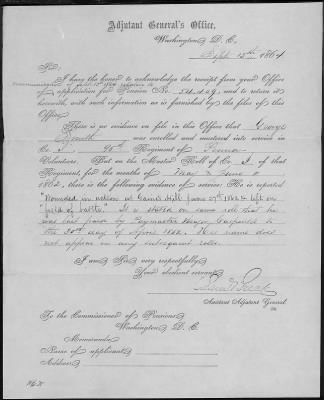 Adjutant General's Office,
Washington D. C.
Sept 15th 1864
Sir:
I have the honor to acknowledge the receipt from your Office
of application for Pension No. and to return it
herewith, with such information as is furnished by the files of this
Office.
There is no evidence on file in this Office that George
was enrolled and mustered into service in
Co. Regiment of Penna
Volunteers. But on the Muster Roll of Co. I of that
Regiment, for the months of May & June
1862, there is the following evidence of service: He is reported
"Wounded in action at Gaines Hill June 27th 1862 & left on
field of battle". It is stated on same roll that he
was last paid by Paymaster Major to
the 30th day of April 1862. His name does
not appear on any subsequent rolls.
I am Sir, very respectfully,
Your obedient servant,
Assistant Adjutant General
To the Commissioner of Pensions
Washington D. C.
Memoranda
Name of applicant
Address